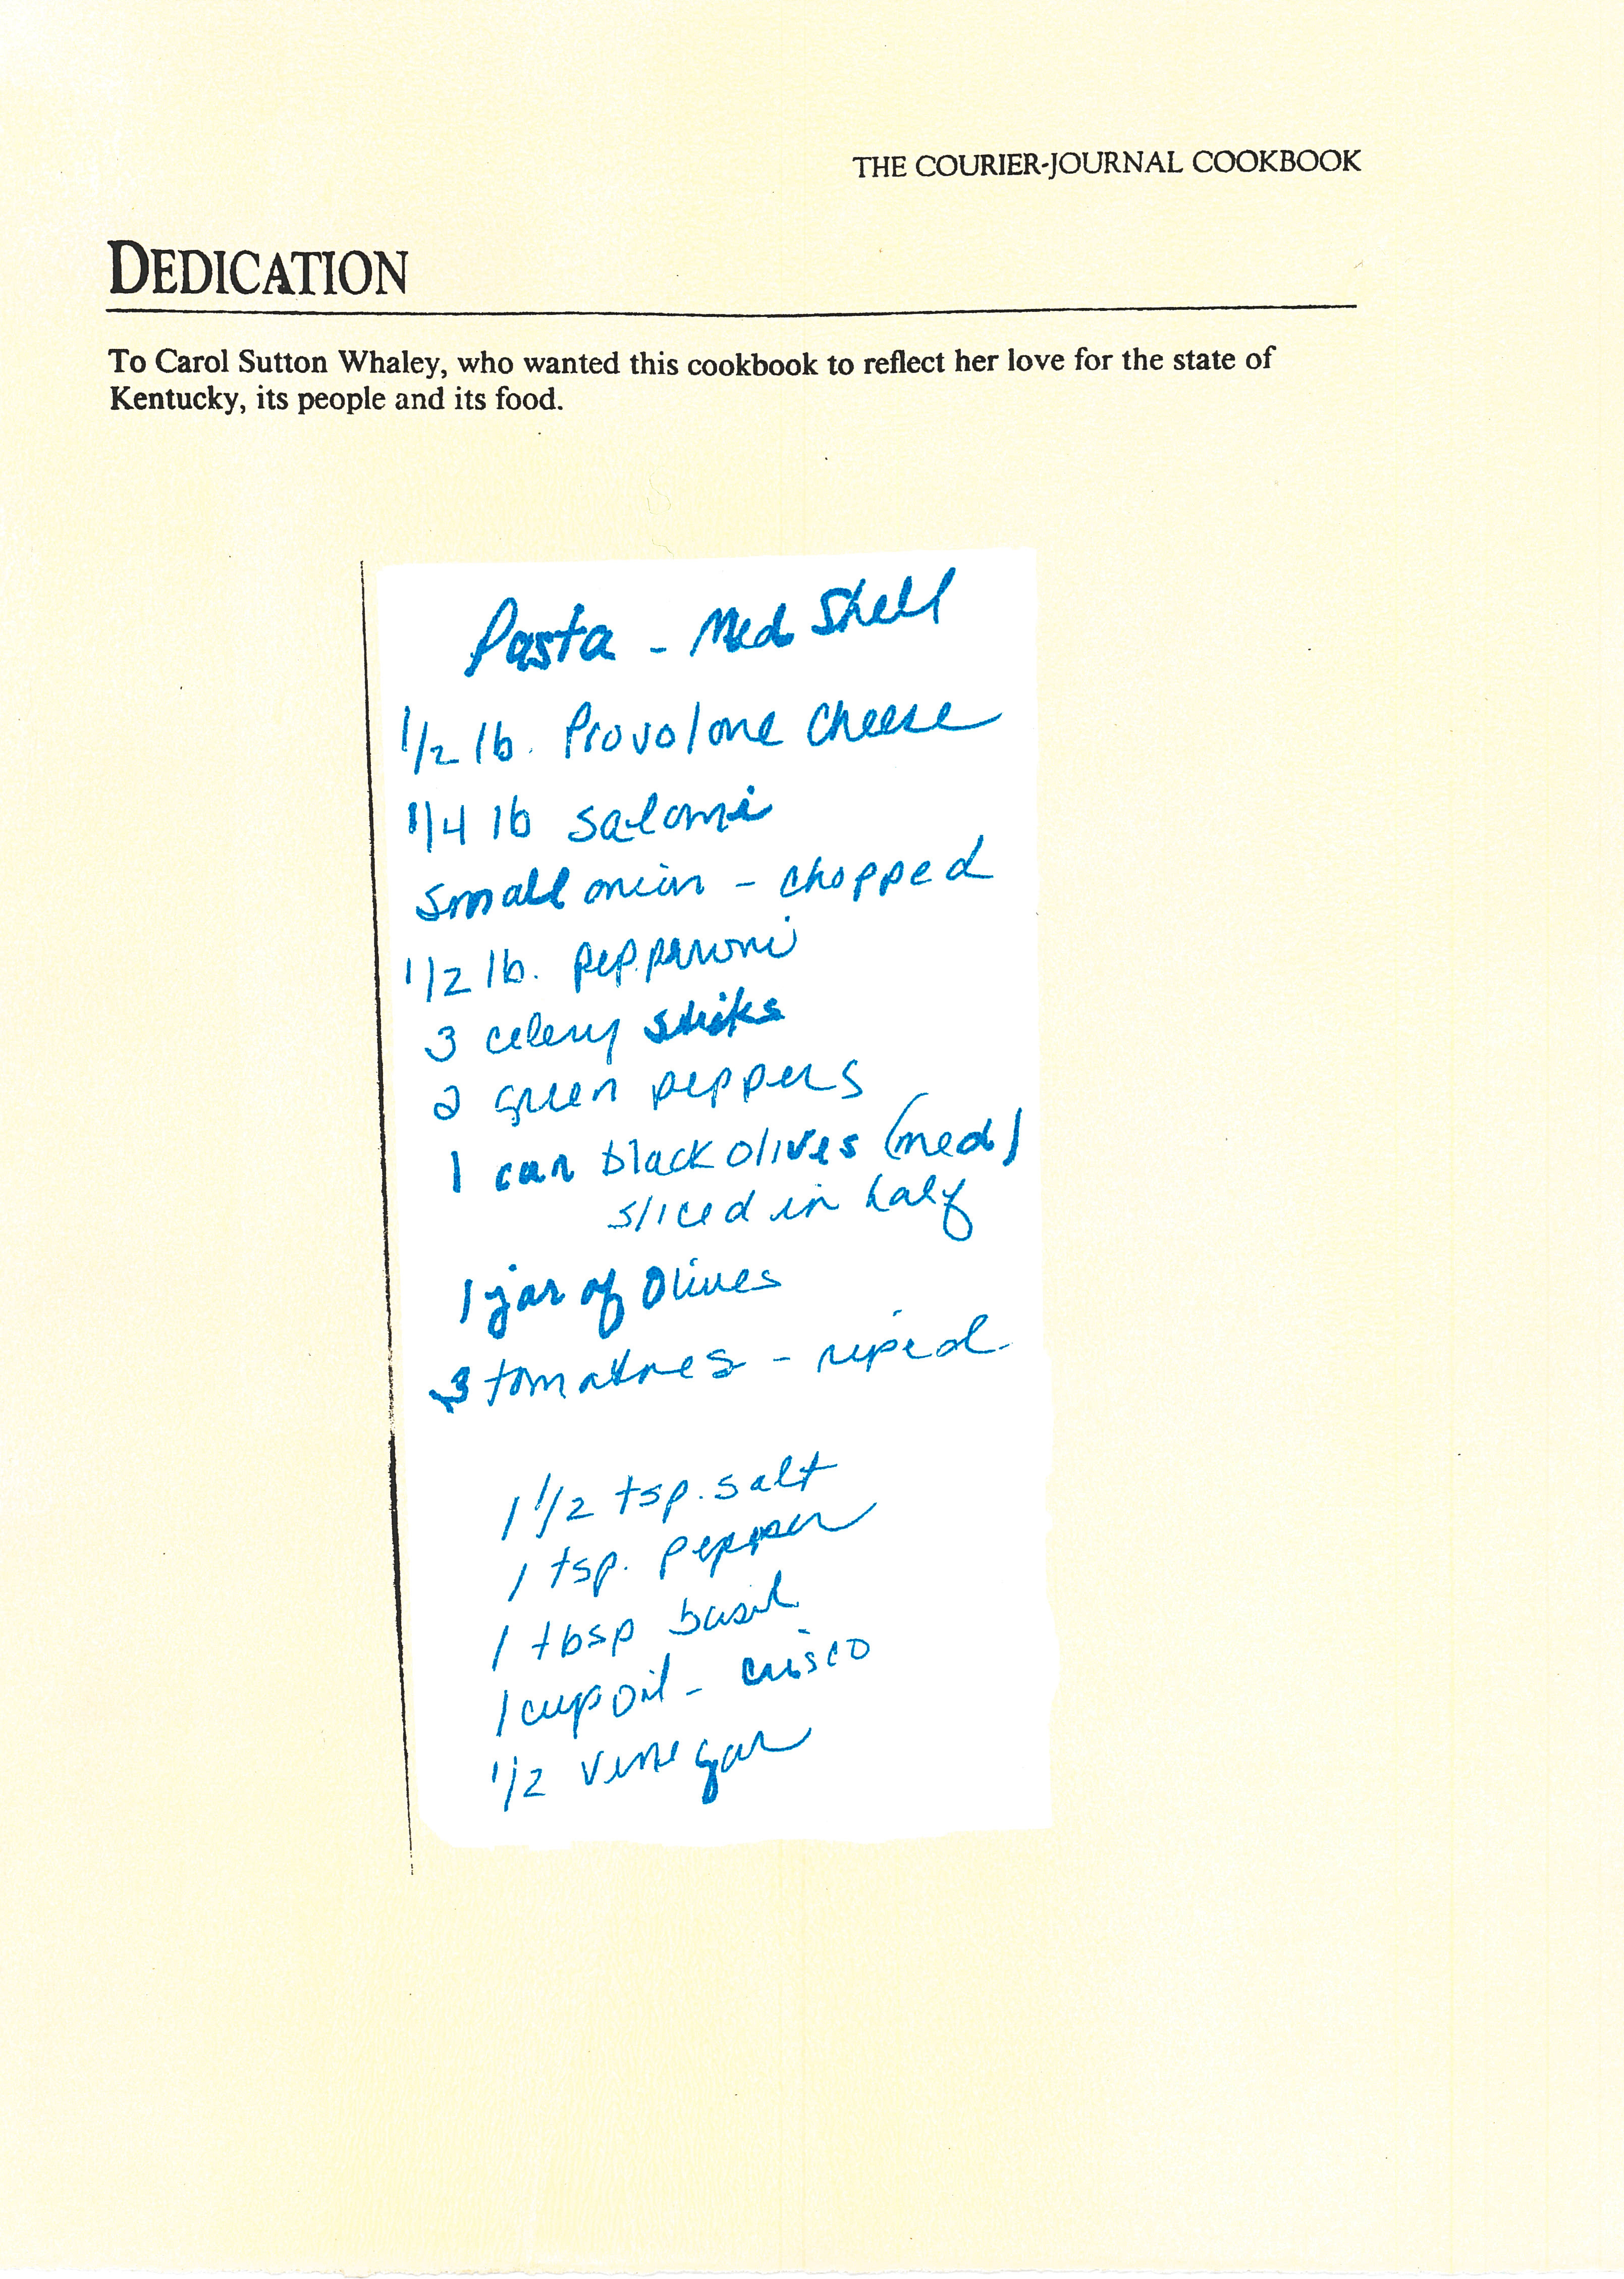 THE COURIER-JOURNAL COOKBOOK
DEDICATION
To Carol Sutton Whaley, who wanted this cookbook to reflect her love for the state of
Kentucky, its people and its food.
Pasta - Med Shell
1/2 lb. Provolone Cheese
1/4 lb salami
small onion - chopped
1/2 lb. pepparoni
3 celery stiks
2 green peppers
1 can black olives (med)
sliced in half
1 jar of Olives
3 tomatoes - riped
1 1/2 tsp. salt
1 tsp. pepper
1 tbsp basil
1 cup oil - crisco
1/2 vinegar